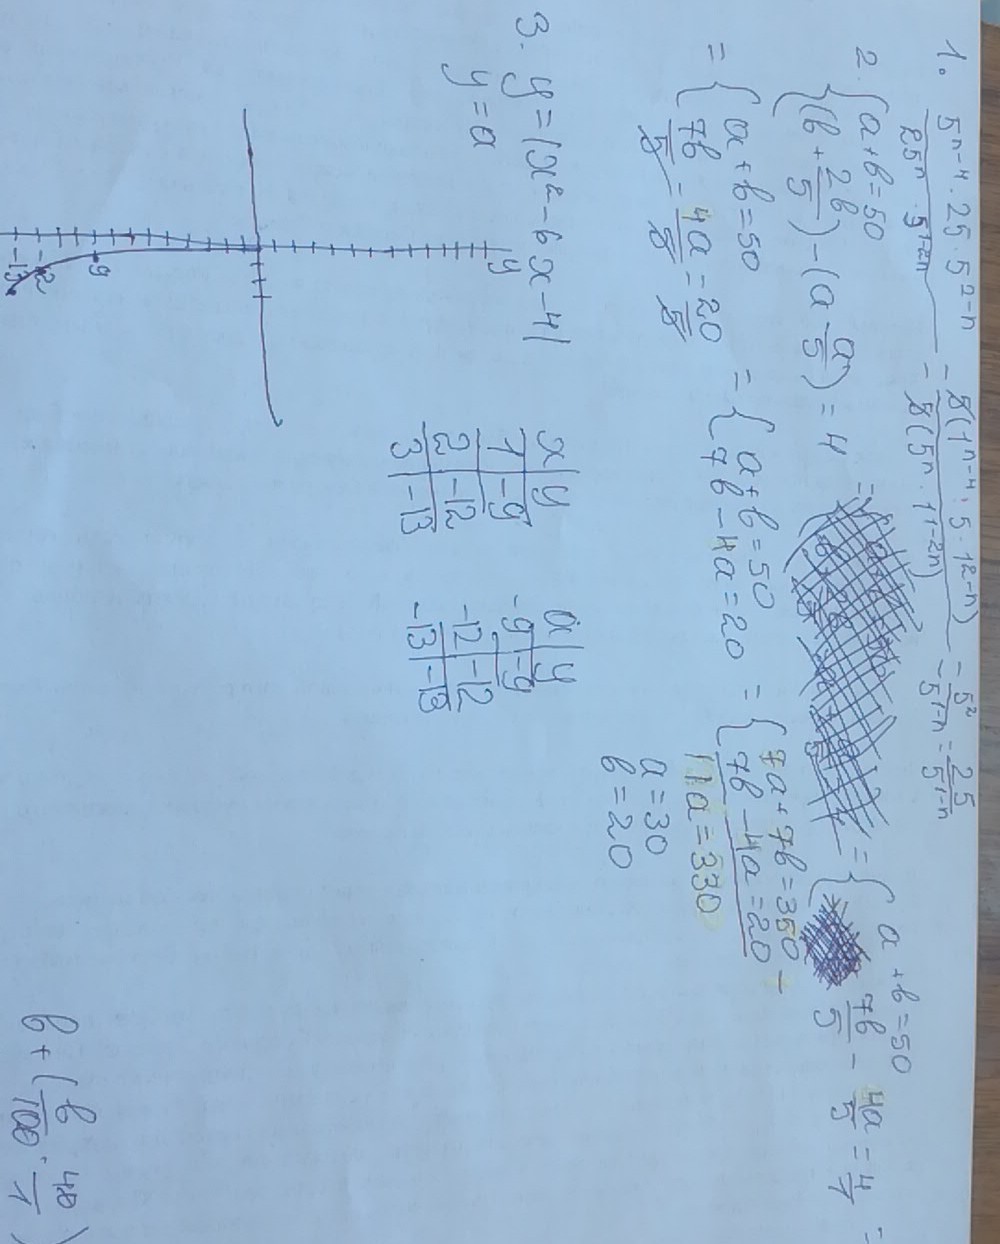 1. \frac{5^{n-4} \cdot 25 \cdot 5^{2-n}}{25^n \cdot 5^{1-2n}} = \frac{5(1^{n-4} \cdot 5 \cdot 1^{2-n})}{5(5^n \cdot 1^{1-2n})} = \frac{5^2}{5^{1-n}} = \frac{25}{5^{1-n}}
2. { a+b=50
(b + \frac{2b}{5}) - (a - \frac{a}{5}) = 4 =
= { a+b=50
\frac{7b}{5} - \frac{4a}{5} = \frac{4}{1} =
= { a+b=50
\frac{7b}{5} - \frac{4a}{5} = \frac{20}{5}
= { a+b=50
7b-4a=20
= { 7a+7b=350 -
7b-4a=20
11a=330
a=30
b=20
3. y=|x²-6x-4|
y=a
x | y
1 | -9
2 | -12
3 | -13
a | y
-9 | -9
-12 | -12
-13 | -13
y
-9
-12
-13
b + ( \frac{b}{100} \cdot \frac{40}{1} )